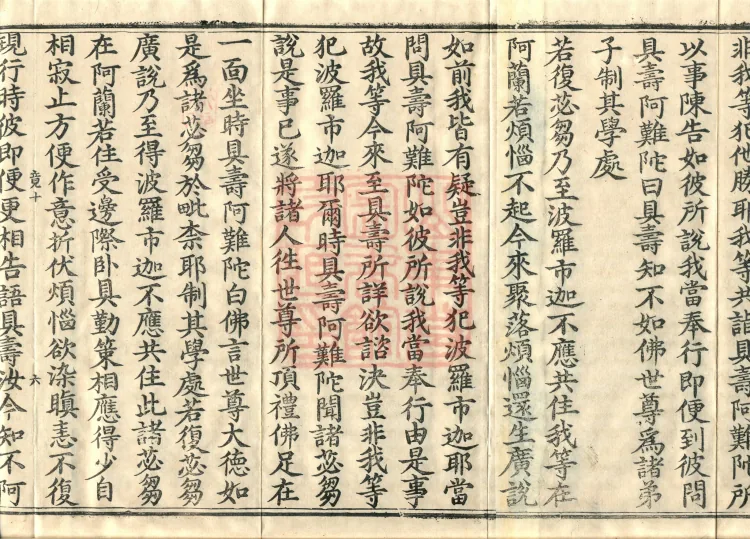 非我等犯他勝耶我等共詣具壽阿難陀所
以事陳告如彼所說我當奉行即便到彼問
具壽阿難陀曰具壽知不如佛世尊爲諸弟
子制其學處
若復苾芻乃至波羅市迦不應共住我等在
阿蘭若煩惱不起今來聚落煩惱還生廣說
如前我皆有疑豈非我等犯波羅市迦耶當
問具壽阿難陀如彼所說我當奉行由是事
故我等今來至具壽所詳欲諮決豈非我等
犯波羅市迦耶爾時具壽阿難陀聞諸苾芻
說是事已遂將諸人往世尊所頂禮佛足在
一面坐時具壽阿難陀白佛言世尊大德如
是爲諸苾芻於毗柰耶制其學處若復苾芻
廣說乃至得波羅市迦不應共住此諸苾芻
在阿蘭若住受邊際卧具勤策相應得少自
相寂止方便作意折伏煩惱欲染瞋恚不復
竟十 六
現行時彼即便更相告語具壽汝今知不阿